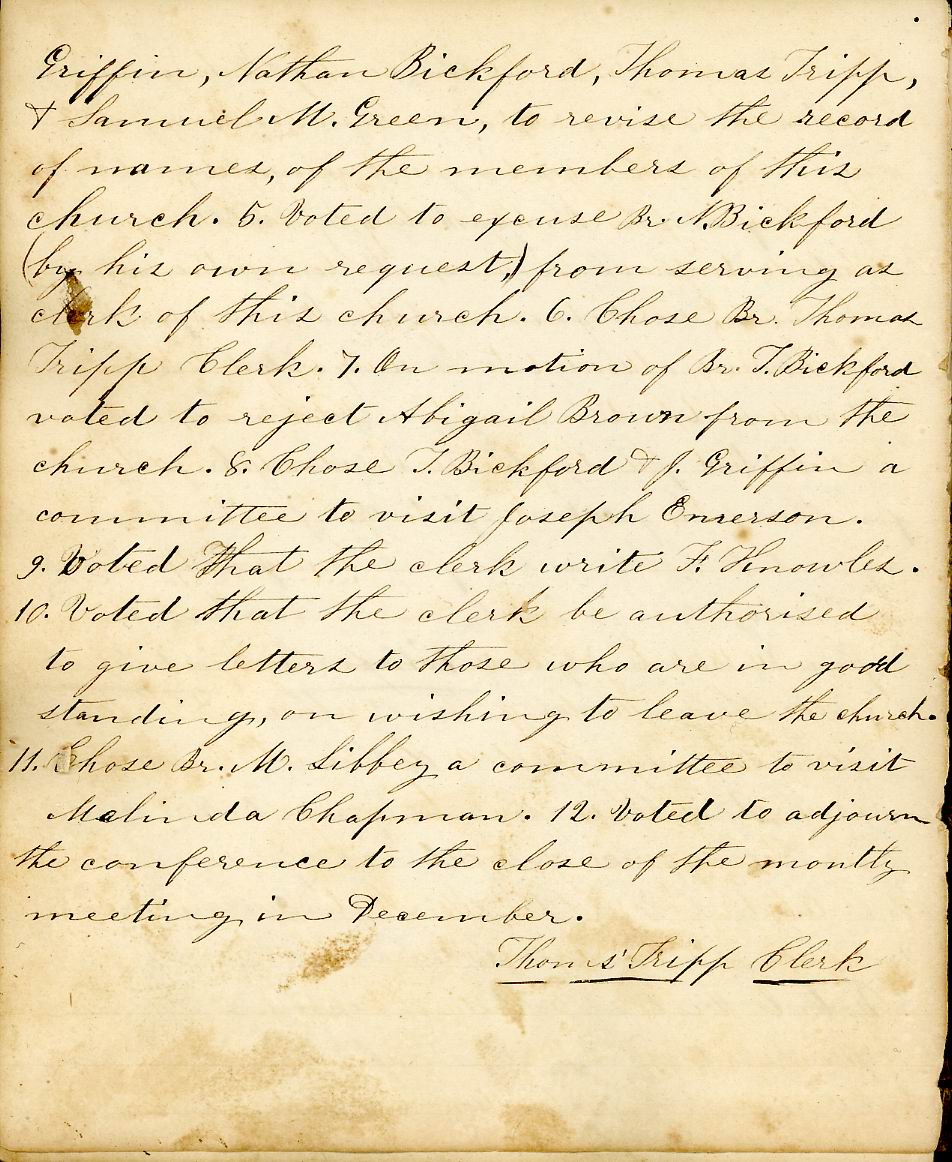 Griffin, Nathan Bickford, Thomas Tripp,
& Samuel M. Green, to revise the record
of names, of the members of this
church. 5. Voted to excuse Br. N. Bickford
(by his own request,) from serving as
clerk of this church. 6. Chose Br. Thomas
Tripp Clerk. 7. On motion of Br. T. Bickford
voted to reject Abigail Brown from the
church. 8. Chose T. Bickford & J. Griffin a
committee to visit Joseph Emerson.
9. Voted That the clerk write F. Knowles.
10. Voted that the clerk be authorised
to give letters to those who are in good
standing, on wishing to leave the church.
11. Chose Br. M. Libbey a committee to visit
Malinda Chapman. 12. Voted to adjourn
the conference to the close of the montly
meeting in December.
Thomas Tripp Clerk